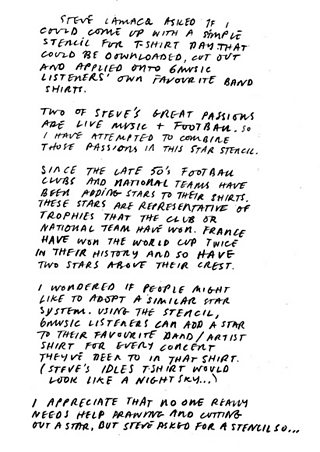 STEVE LAMACQ ASKED IF I
COULD COME UP WITH A SIMPLE
STENCIL FOR T-SHIRT DAY THAT
COULD BE DOWNLOADED, CUT OUT
AND APPLIED ONTO 6MUSIC
LISTENERS' OWN FAVOURITE BAND
SHIRTS.
TWO OF STEVE'S GREAT PASSIONS
ARE LIVE MUSIC + FOOTBALL. SO
I HAVE ATTEMPTED TO COMBINE
THOSE PASSIONS IN THIS STAR STENCIL.
SINCE THE LATE 50'S FOOTBALL
CLUBS AND NATIONAL TEAMS HAVE
BEEN ADDING STARS TO THEIR SHIRTS.
THESE STARS ARE REPRESENTATIVE OF
TROPHIES THAT THE CLUB OR
NATIONAL TEAM HAVE WON. FRANCE
HAVE WON THE WORLD CUP TWICE
IN THEIR HISTORY AND SO HAVE
TWO STARS ABOVE THEIR CREST.
I WONDERED IF PEOPLE MIGHT
LIKE TO ADOPT A SIMILAR STAR
SYSTEM. USING THE STENCIL,
6MUSIC LISTENERS CAN ADD A STAR
TO THEIR FAVOURITE BAND/ARTIST
SHIRT FOR EVERY CONCERT
THEY'VE BEEN TO IN THAT SHIRT.
(STEVE'S IDLES T-SHIRT WOULD
LOOK LIKE A NIGHT SKY...)
I APPRECIATE THAT NO ONE REALLY
NEEDS HELP DRAWING AND CUTTING
OUT A STAR, BUT STEVE ASKED FOR A STENCIL SO...